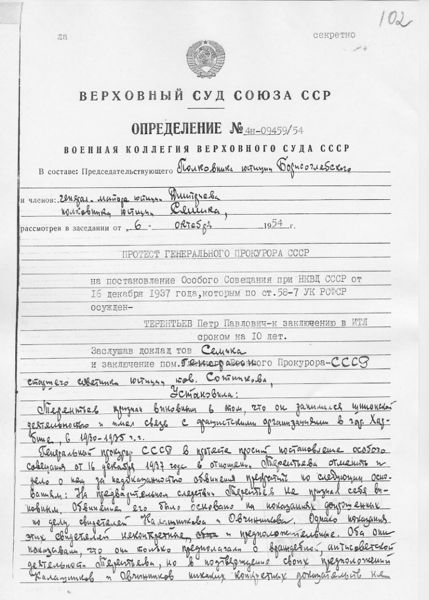 102
ла
секретно
ВЕРХОВНЫЙ СУД СОЮЗА ССР
ОПРЕДЕЛЕНИЕ №4н-09459/54
ВОЕННАЯ КОЛЛЕГИЯ ВЕРХОВНОГО СУДА СССР
В составе: Председательствующего Полковника юстиции Борисоглебского
и членов: генерал-майора юстиции Дмитриева
полковника юстиции Семика,
рассмотрев в заседании от „ 6- " октября 1954 г.
ПРОТЕСТ ГЕНЕРАЛЬНОГО ПРОКУРОРА СССР
на постановление Особого Совещания при НКВД СССР от
16 декабря 1937 года, которым по ст.58-7 УК РСФСР
осужден-
ТЕРЕНТЬЕВ Петр Павлович-к заключению в ИТЛ
сроком на 10 лет.
Заслушав доклад тов Семика
и заключение пом. Генерального Прокурора-СССР
старшего советника юстиции тов.
Установила:
Терентьев признан виновным в том, что он занимался шпионской
деятельностью и имел связь с фашистскими организациями в гор. Хар-
бине, в 1930-1935 г.г.
Генеральный прокурор СССР в протесте просит постановление особого
совещания от 16 декабря 1937 года в отношении Терентьева отменить и
дело о нем за недоказанностью обвинения прекратить по следующим осно-
ваниям: На предварительном следствии Терентьев не признал себя ви-
новным. Обвинение его было основано на показаниях допрошенных
по делу свидетелей Калашникова и Овчинникова. Однако показания
этих свидетелей неконкретные, и предположительные. Оба они
показывали, что они только предполагали о враждебной, антисоветской
деятельности Терентьева, но в подтверждение своих предположений
Калашников и Овчинников никаких конкретных доказательств не